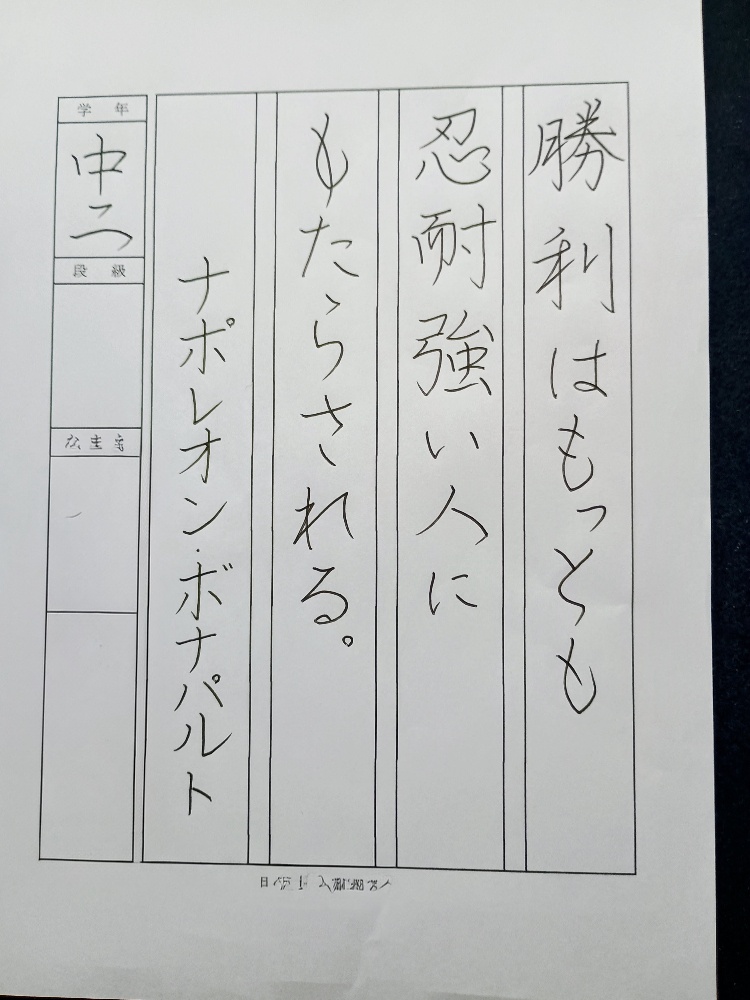 勝利はもっとも
忍耐強い人に
もたらされる。
ナポレオン・ボナパルト
学年
中二
段級